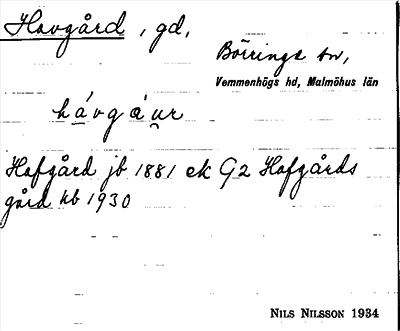 Havgård, gd,
Börringe sn,
Vemmenhögs hd, Malmöhus län
hávgáu̯r
Hafgård jb 1881 ek G2 Hafgårds
gård kb 1930
NILS NILSSON 1934